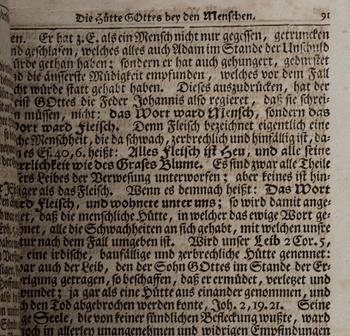 Die Hütte GOttes bey den Menschen. 91
en. Er hat z. E. als ein Mensch nicht nur gegessen, getruncken
d geschlafen, welches alles auch Adam im Stande der Unschuld
ürde gethan haben: sondern er hat auch gehungert, gedürstet
d die äusserste Müdigkeit empfunden, welches vor dem Fall
cht würde statt gehabt haben. Dieses auszudrücken, hat der
eist GOttes die Feder Johannis also regieret, daß sie schrei-
n müssen, nicht: das Wort ward Mensch, sondern das
ort ward Fleisch. Denn Fleisch bezeichnet eigentlich eine
che Menschheit, die da schwach, zerbrechlich und hinfällig ist, da-
es Es. 40, 6. heißt: Alles Fleisch ist Heu, und alle seine
errlichkeit wie des Grases Blume. Es sind zwar alle Theile
ers Leibes der Verwesung unterworfen: aber keines ist hin-
iger als das Fleisch. Wenn es demnach heißt: Das Wort
rd Fleisch, und wohnete unter uns; so wird damit ange-
et, daß die menschliche Hütte, in welcher das ewige Wort ge-
net, alle die Schwachheiten an sich gehabt, mit welchen unsre
tur nach dem Fall umgeben ist. Wird unser Leib 2 Cor. 5,
eine irdische, baufällige und zerbrechliche Hütte genennet:
ar auch der Leib, den der Sohn GOttes im Stande der Er-
rigung getragen, so beschaffen, daß er ermüdet, verletzet und
wundet; ja gar als eine Hütte aus einander genommen, und
ch den Tod abgebrochen werden konte, Joh. 2, 19. 21. Seine
ge Seele, die von keiner sündlichen Befleckung wußte, ward
och in allerley unangenehmen und widrigen Empfindungen